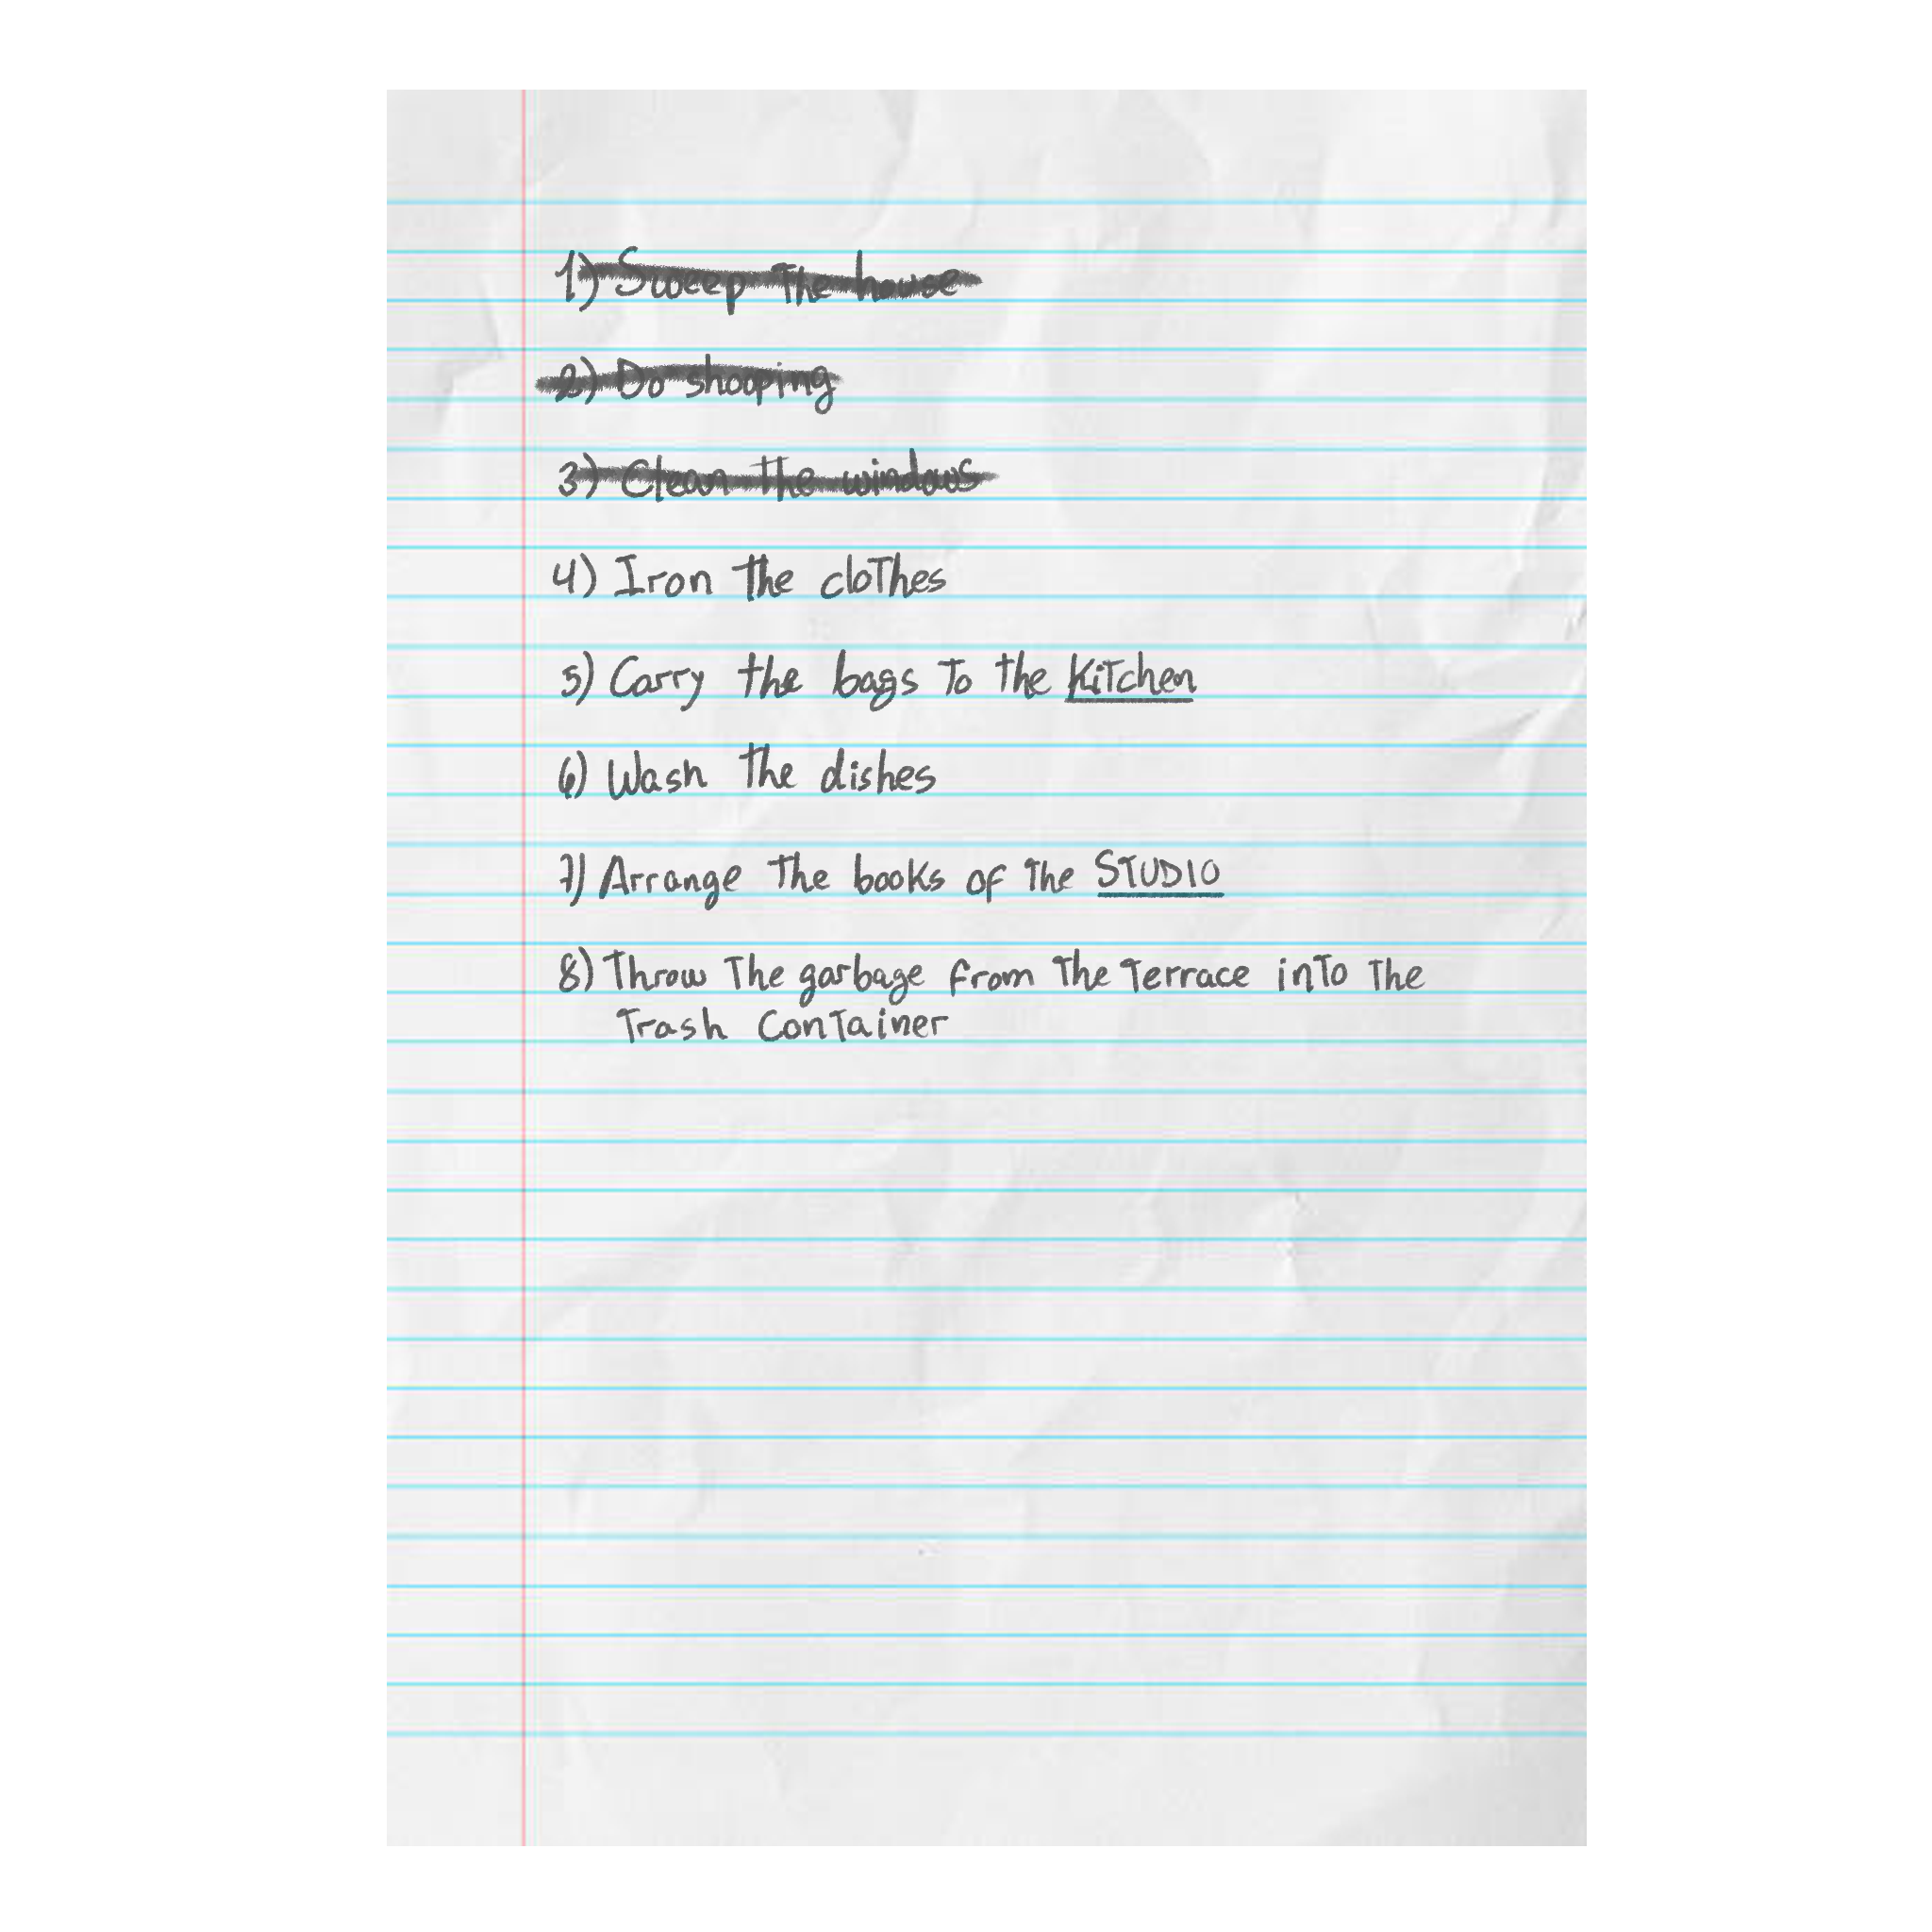 1) Sweep the house
2) Do shooping
3) Clean the windows
4) Iron the clothes
5) Carry the bags to the kitchen
6) Wash the dishes
7) Arrange the books of the STUDIO
8) Throw the garbage from the terrace into the
trash container